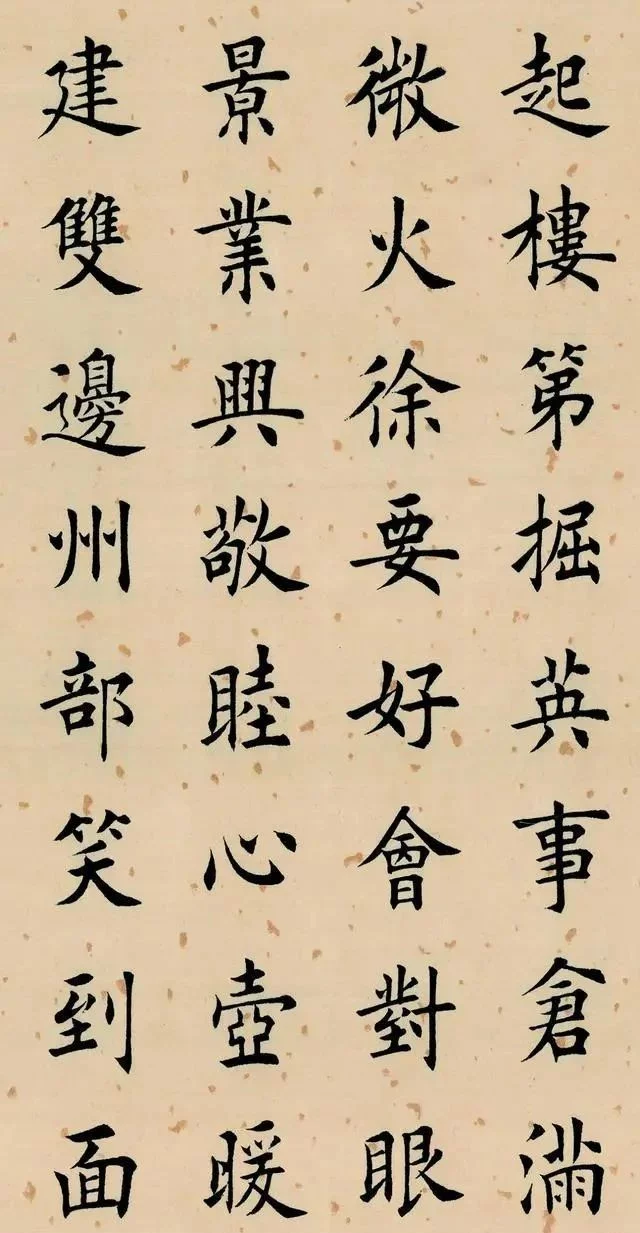 起樓第掘英事倉滿
微火徐要好會對眼
景業興敬睦心壺暖
建雙邊州部笑到面